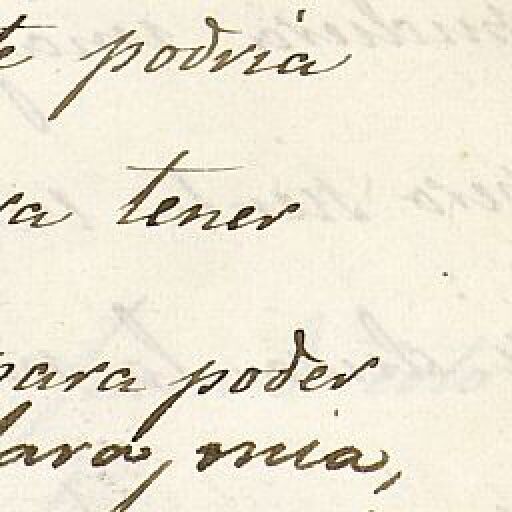 te podria
ra tener
para poder
lara, mia,